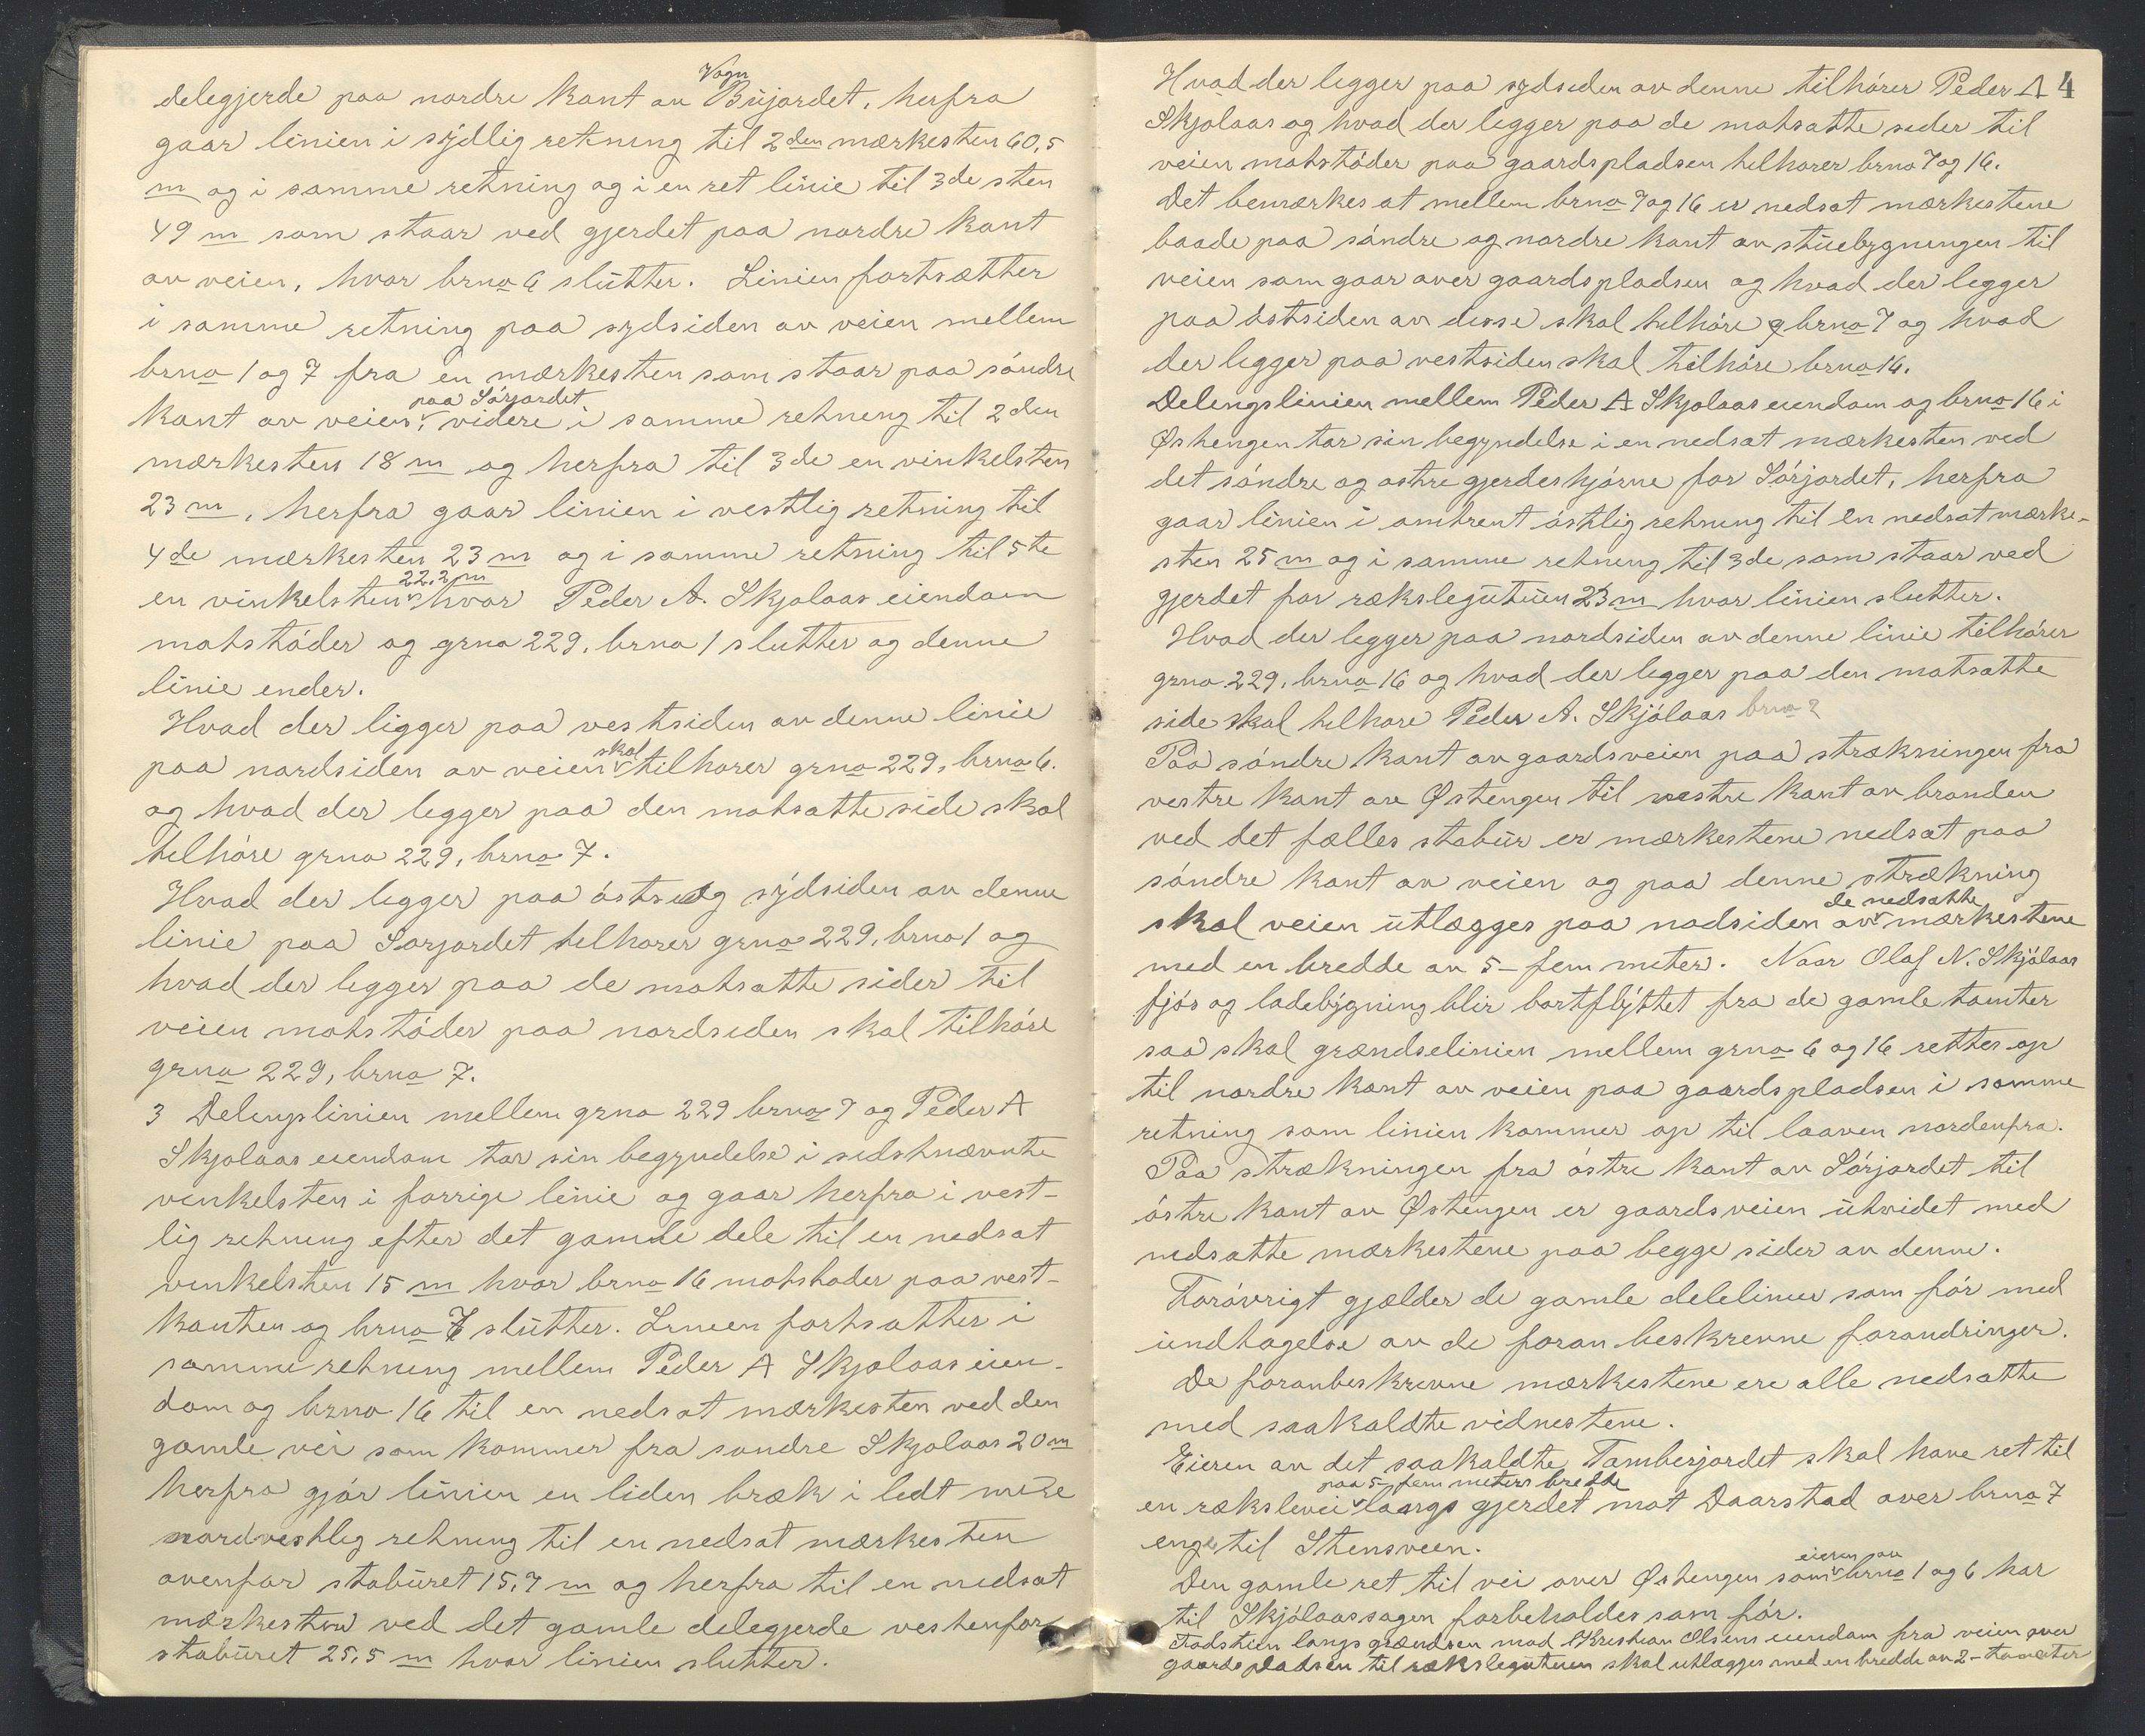 delegjerde paa nordre kant av Vogn Büjordet, herfra
gaar linien i sydlig retning til 2den mærkesten 60,5
m og i samme retning og i en ret linie til 3de sten
49 m som staar ved gjerdet paa nordre kant
av veien, hvor brno 6 slütter. Linien fortsætter
i samme retning paa sydsiden av veien mellem
brno 1 og 7 fra en mærkesten som staar paa söndre
kant av veien, paa Sörjordet videre i samme retning til 2den
mærkesten 18 m og herfra til 3de en vinkelsten
23 m, herfra gaar linien i vestlig retning til
4de mærkesten 23 m og i samme retning til 5te
en vinkelsten 22,2 m hvor Peder A. Skjolaas eiendom
motstöder og grno 229, brno 1 slutter og denne
linie ender.
Hvad der ligger paa vestsiden av denne linie
paa nordsiden av veien skal tilhorer grno 229, brno 6.
og hvad der legger paa den motsatte side skal
tilhöre grno 229, brno 7.
Hvad der legger paa östs og sydsiden av denne
linie paa Sorjordet tilhorer grno 229, brno 1 og
hvad der legger paa de motsatte sider til
veien motstöder paa nordsiden skal tilhöre
grno 229, brno 7.
3 Delingslinien mellem grno 229 brno 7 og Peder A
Skjolaas eiendom tar sin begyndelse i sidstnævnte
vinkelsten i forrige linie og gaar herfra i vest-
lig retning efter det gamle dele til en nedsat
vinkelsten 15 m hvor brno 16 motstoder paa vest-
kanten og brno 7 slütter. Linien fortsatter i
samme retning mellem Peder A Skjolaas eien-
dom og brno 16 til en nedsat mærkesten ved den
gamle vei som kommer fra sondre Skjolaas 20 m
herfra gjör linien en liden bræk i ledt mere
nordvestlig retning til en nedsat mærkesten
ovenfor stabüret 15,7 m og herfra til en nedsat
mærkesten ved det gamle delegjerde vestenfor
stabüret 25,5 m hvor linien slutter.
4
Hvad der legger paa sydsiden av denne tilhörer Peder A
Skjolaas og hvad der legger paa de motsatte sider til
veien motstöder paa gaardspladsen tilhorer brno 7 og 16.
Det bemærkes at mellem brno 7 og 16 er nedsat mærkestene
baade paa söndre og nordre kant av stüebygningen til
veien som gaar over gaardspladsen og hvad der legger
paa östsiden av disse skal tilhöre brno 7 og hvad
der legger paa vestsiden skal tilhöre brno 16.
Delingslinien mellem Peder A Skjolaas eiendom og brno 16 i
Østengen tar sin begyndelse i en nedsat mærkesten ved
det söndre og ostre gjerdeshjörne for Sörjordet, herfra
gaar linien i omtrent östlig retning til en nedsat mærke-
sten 25 m og i samme retning til 3de som staar ved
gjerdet for rækslegütuen 23 m hvor linien slutter.
Hvad der legger paa nordsiden av denne linie tilhörer
grno 229, brno 16 og hvad der legger paa den motsatte
side skal tilhore Peder A. Skjölaas brno 2
Paa söndre kant av gaardsveien paa strækningen fra
vestre kant av Østengen til vestre kant av bronden
ved det fælles stabür er mærkestene nedsat paa
söndre kant av veien og paa denne strækning
skal veien ütlægges paa nodsiden av de nedsatte mærkestene
med en bredde av 5 - fem meter. Naar Olaf N. Skjölaas
fjös og ladebygning blir bortflyttet fra de gamle tomter
saa skal grændselinien mellem grno 6 og 16 rettes op
til nordre kant av veien paa gaardspladsen i samme
retning som linien kommer op til laaven nordenfra.
Paa strækningen fra östre kant av Sörjordet til
östre kant av Østengen er gaardsveien ütvidet med
nedsatte mærkestene paa begge sider av denne.
Forövrigt gjælder de gamle delelinier som för med
ündtagelse av de foran beskrevne forandringer.
De foranbeskrevne mærkestene ere alle nedsatte
med saakaldte vidnestene.
Eieren av det saakaldte Tomberjordet skal have ret til
en rækslevei paa 5 - fem meters bredde langs gjerdet mot Daarstad over brno 7
eng til Stensveen.
Den gamle ret til vei over Østengen som eieren av brno 1 og 6 har
til Skjölaassagen forbeholdes som för.
Fodstien langs grændsen mod Kristian Olsens eiendom fra veien over
gaardspladsen til rækslegütuen skal utlægges med en bredde av 2 - to meter